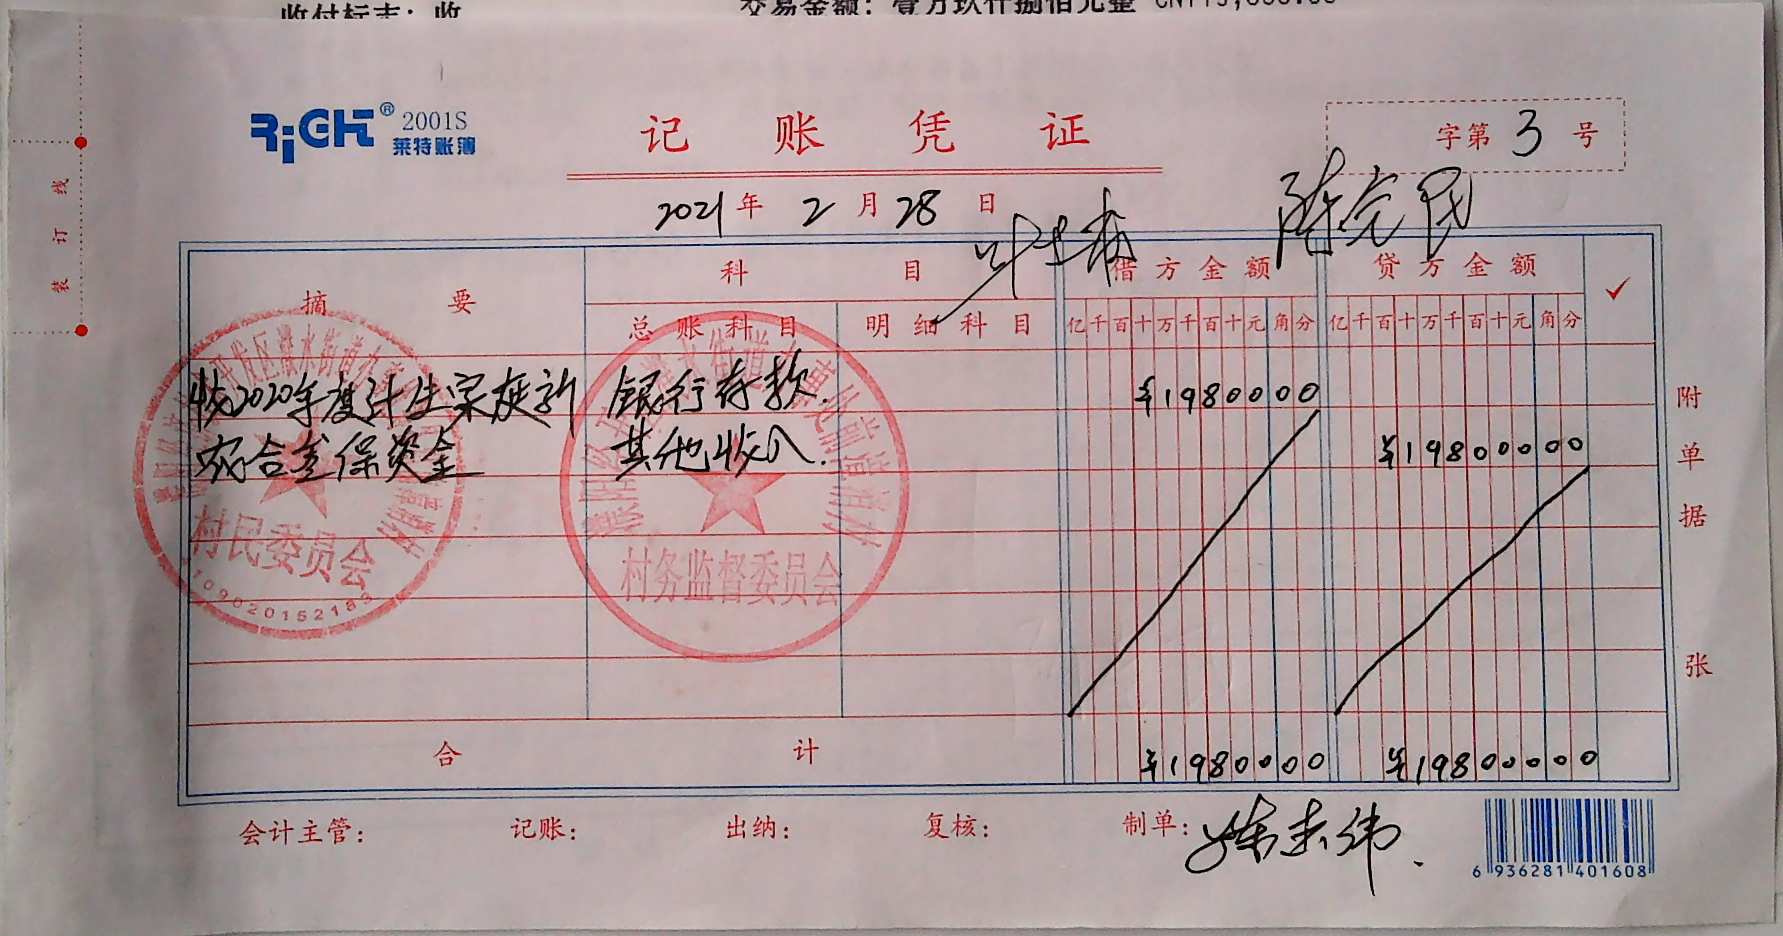 收付标志：收
交易金额：壹万玖仟捌佰元整 CNY19,800.00
RiGHT® 2001S
莱特账簿
记账凭证
字第 3 号
2021 年 2 月 28 日
摘要
科目
借方金额
贷方金额
✓
总账科目
明细科目
亿千百十万千百十元角分
亿千百十万千百十元角分
收2020年度计生家庭新
农合参保资金
银行存款.
其他收入.
¥1980000
¥1980000
村民委员会
村务监督委员会
合计
¥1980000
¥1980000
附单据 张
装订线
会计主管：
记账：
出纳：
复核：
制单：
6 936281 401608